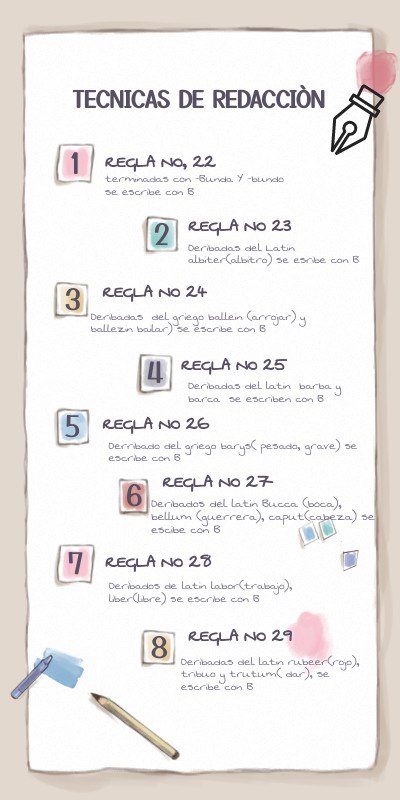 TECNICAS DE REDACCIÒN
1
REGLA NO, 22
terminadas con -Bunda Y -bundo
se escribe con B
2
REGLA NO 23
Deribadas del Latin
albiter(albitro) se esribe con B
3
REGLA NO 24
Deribadas del griego ballein (arrojar) y
ballezin bailar) se escribe con B
4
REGLA NO 25
Deribadas del latin barba y
barca se escriben con B
5
REGLA NO 26
Derribado del griego barys( pesado, grave) se
escribe con B
6
REGLA NO 27
Deribados del latin Bucca (boca),
bellum (guerrera), caput(cabeza) se
escibe con B
7
REGLA NO 28
Deribados de latin labor(trabajo),
liber(libre) se escribe con B
8
REGLA NO 29
Deribadas del latin rubeer(rojo),
tribuo y trutum( dar), se
escribe con B